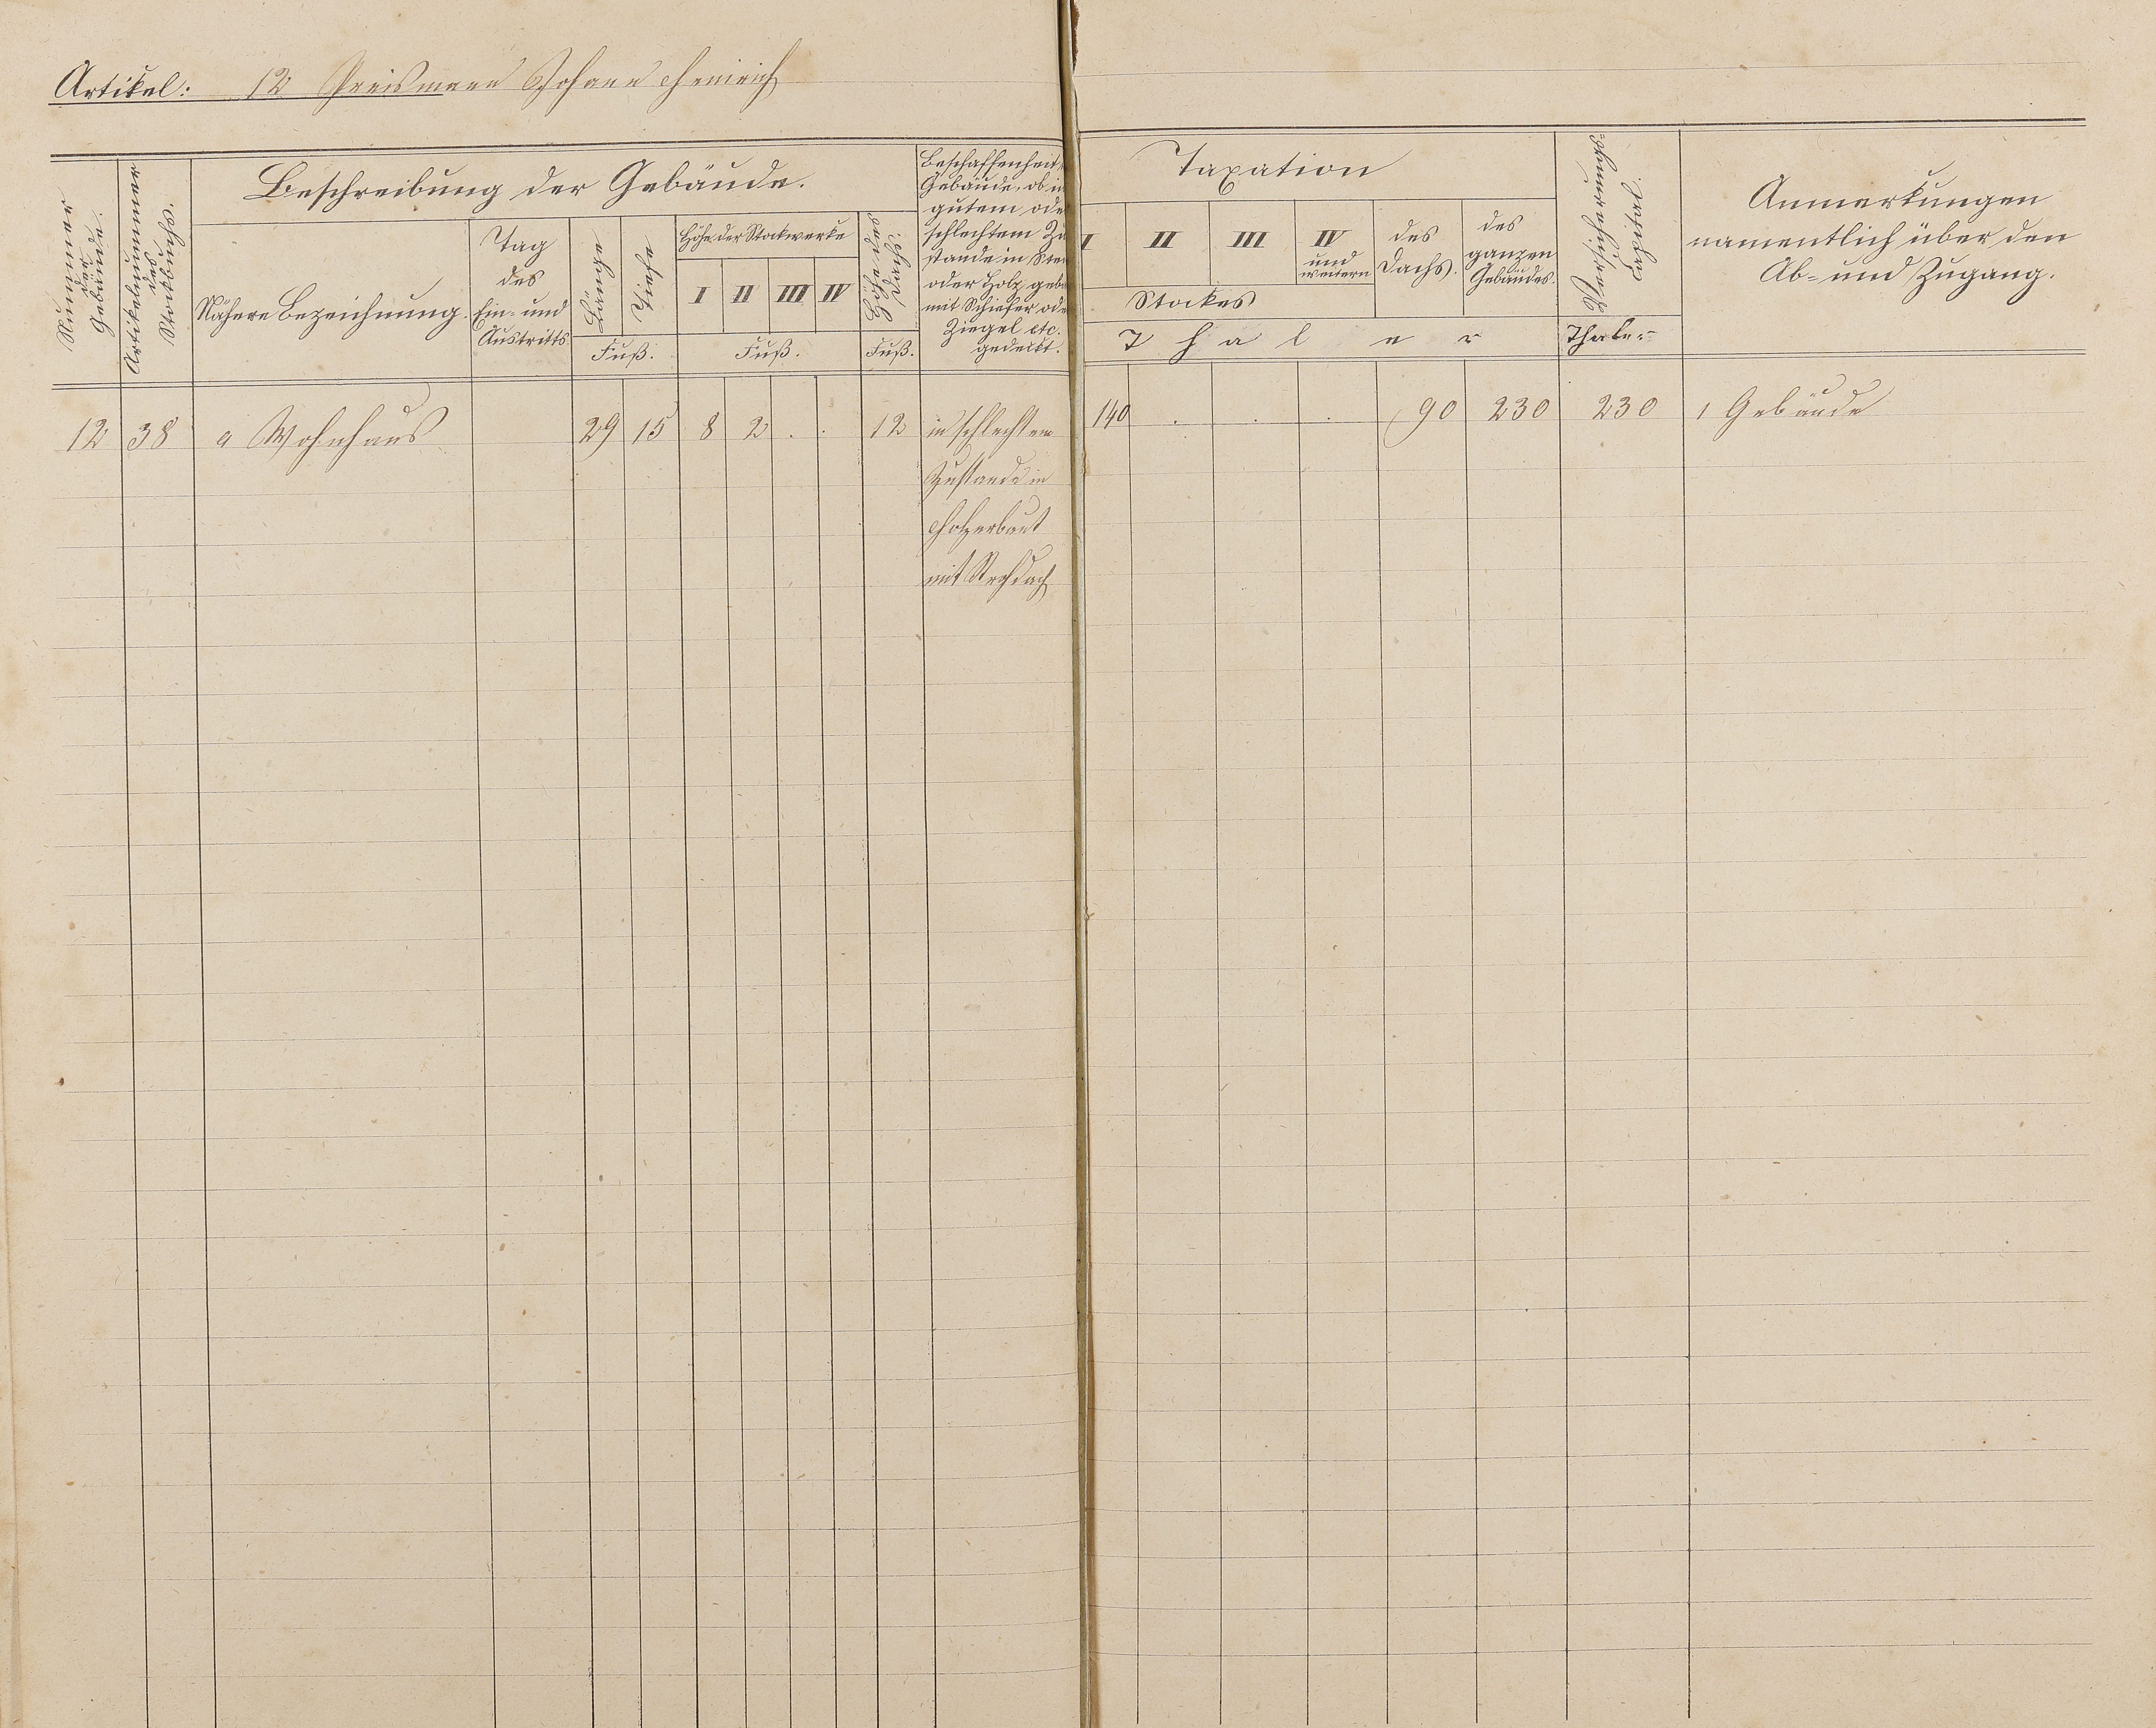 Artikel: 12 Preismann Johann Heinrich
Nummer der Gebäude.
Artikelnummer des Stockbuchs.
Beschreibung der Gebäude.
Nähere Bezeichnung.
Tag des Ein- und Austritts
Länge
Tiefe
Fuß.
Höhe der Stockwerke
I II III IV
Fuß.
Höhe des Dachs.
Fuß.
Beschaffenheit
Gebäude, ob in
gutem ode
schlechtem Zu
stande in Stei
oder Holz geb
mit Schiefer ode
Ziegel etc.
gedeckt.
Taxation
I II III IV und weitern
Stockes
des Dachs.
des ganzen Gebäudes.
Thaler
Versicherungs
Kapital.
Thaler
Anmerkungen
namentlich über den
Ab- und Zugang.
12 38 a Wohnhaus 29 15 8 2 . . 12 in schlechtem 140 . . . 90 230 230 1 Gebäude
Zustande in
Holz erbaut
mit Strohdach